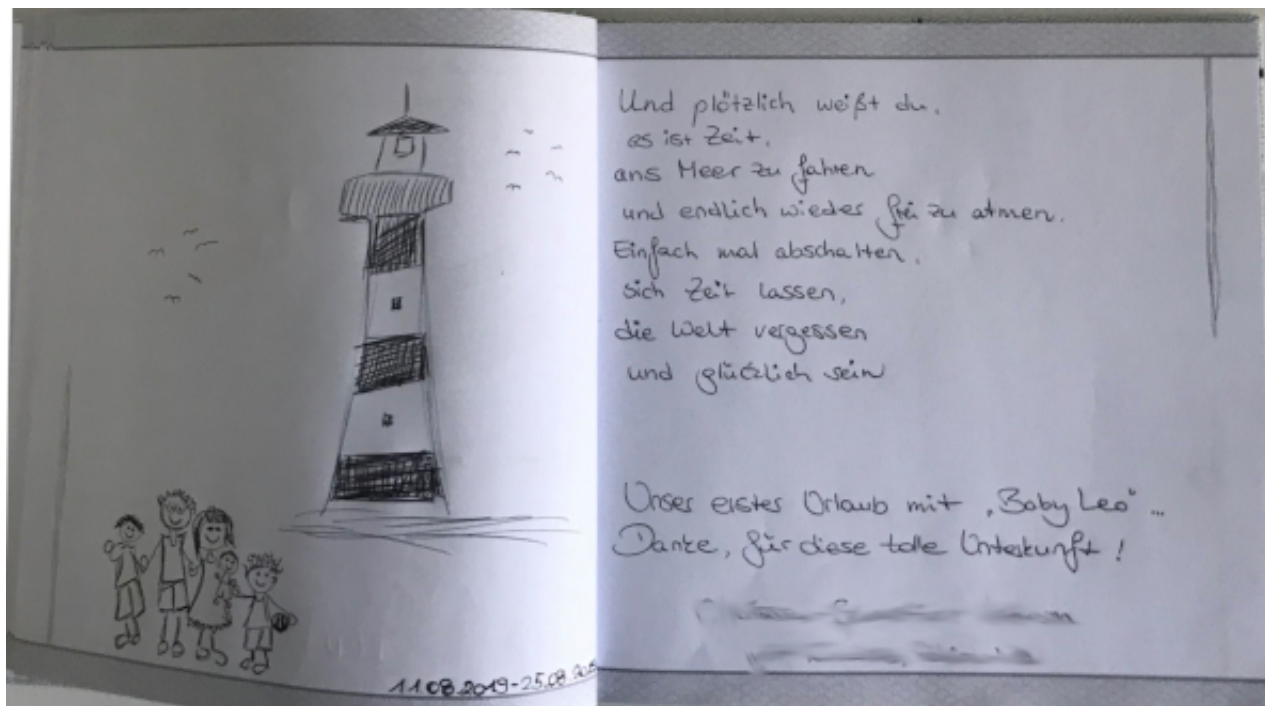 11.08.2019-25.08.20
Und plötzlich weißt du,
es ist Zeit,
ans Meer zu fahren
und endlich wieder frei zu atmen.
Einfach mal abschalten,
sich Zeit lassen,
die Welt vergessen
und glücklich sein
Unser erster Urlaub mit „Baby Leo“...
Danke, für diese tolle Unterkunft!